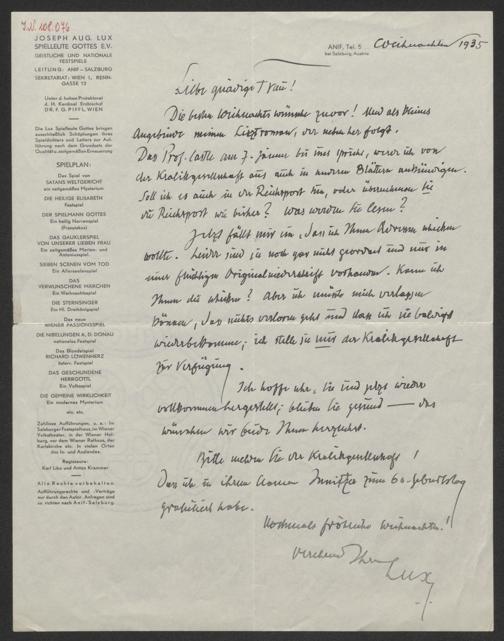 I.N. 198.076
JOSEPH AUG. LUX
SPIELLEUTE GOTTES E.V.
GEISTLICHE UND NATIONALE
FESTSPIELE
LEITUNG: ANIF - SALZBURG
SEKRETARIAT: WIEN I., RENN-
GASSE 12
Unter d. hohen Protektorat
d. H. Kardinal Erzbischof
DR. F. G. PIFFL, WIEN
Die Lux Spielleute Gottes bringen
ausschließlich Schöpfungen ihres
Spieldichters und Leiters zur Auf-
führung nach dem Grundsatz der
Qualität u. zeitgemäßen Erneuerung
SPIELPLAN:
Das Spiel von
SATANS WELTGERICHT
ein zeitgemäßes Mysterium
DIE HEILIGE ELISABETH
Festspiel
DER SPIELMANN GOTTES
Ein heilig Narrenspiel
(Franziskus)
DAS GAUKLERSPIEL
VON UNSERER LIEBEN FRAU
Ein zeitgemäßes Marien- und
Antoniusspiel.
SIEBEN SCENEN VOM TOD
Ein Allerseelenspiel
DAS
VERWUNSCHENE MÄRCHEN
Ein Weihnachtsspiel
DIE STERNSINGER
Ein Hl. Dreikönigspiel
Das neue
WIENER PASSIONSSPIEL
DIE NIBELUNGEN A. D. DONAU
nationales Festspiel
Das Blondelspiel
RICHARD LÖWENHERZ
histor. Festspiel
DAS GESCHUNDENE
HERRGOTTL
Ein Volksspiel
DIE GEMEINE WIRKLICHKEIT
Ein modernes Mysterium
etc. etc.
Zahllose Aufführungen, u. a.: Im
Salzburger Festspielhaus, im Wiener
Volkstheater, in der Wiener Hof-
burg, vor dem Wiener Rathaus, der
Karlskirche etc. In vielen Orten
des In- und Auslandes.
Regisseure:
Karl Liko und Anton Krammer
Alle Rechte vorbehalten
Aufführungsrechte und -Verträge
nur durch den Autor. Anfragen sind
zu richten nach Anif-Salzburg.
ANIF, Tel. 5 Weihnachten 1935
bei Salzburg, Austria
Liebe gnädige Frau!
Die besten Weihnachtswünsche zuvor! Und als kleines
Angebinde meinen Lisztroman, der nebenher folgt.
Das Prof. Castle am 7. Jänner bei uns spricht, werde ich von
der Kralikgesellschaft aus auch in anderen Blättern ankündigen.
Soll ich es auch in der Reichspost tun, oder übernehmen Sie
die Reichspost wie bisher? Was werden Sie lesen?
Jetzt fällt mir ein, dass ich Ihnen schicken
wollte. Leider sind sie noch gar nicht geordnet und nur in
einer flüchtigen Originalniederschrift vorhanden. Kann ich
Ihnen die schicken? Aber ich müsste mich verlassen
können, dass nichts verloren geht und dass ich sie baldigst
wiederbekomme; ich stelle sie nur der Kralikgesellschaft
zur Verfügung.
Ich hoffe sehr, Sie sind jetzt wieder
vollkommen hergestellt; bleiben Sie gesund — das
wünschen wir beide Ihnen herzlichst.
Bitte melden Sie der Kralikgesellschaft!
Dass ich in ihrem Namen Innitzer zum 60. Geburtstag
gratuliert habe.
Nochmals fröhliche Weihnachten!
Verehrend Ihr
Lux